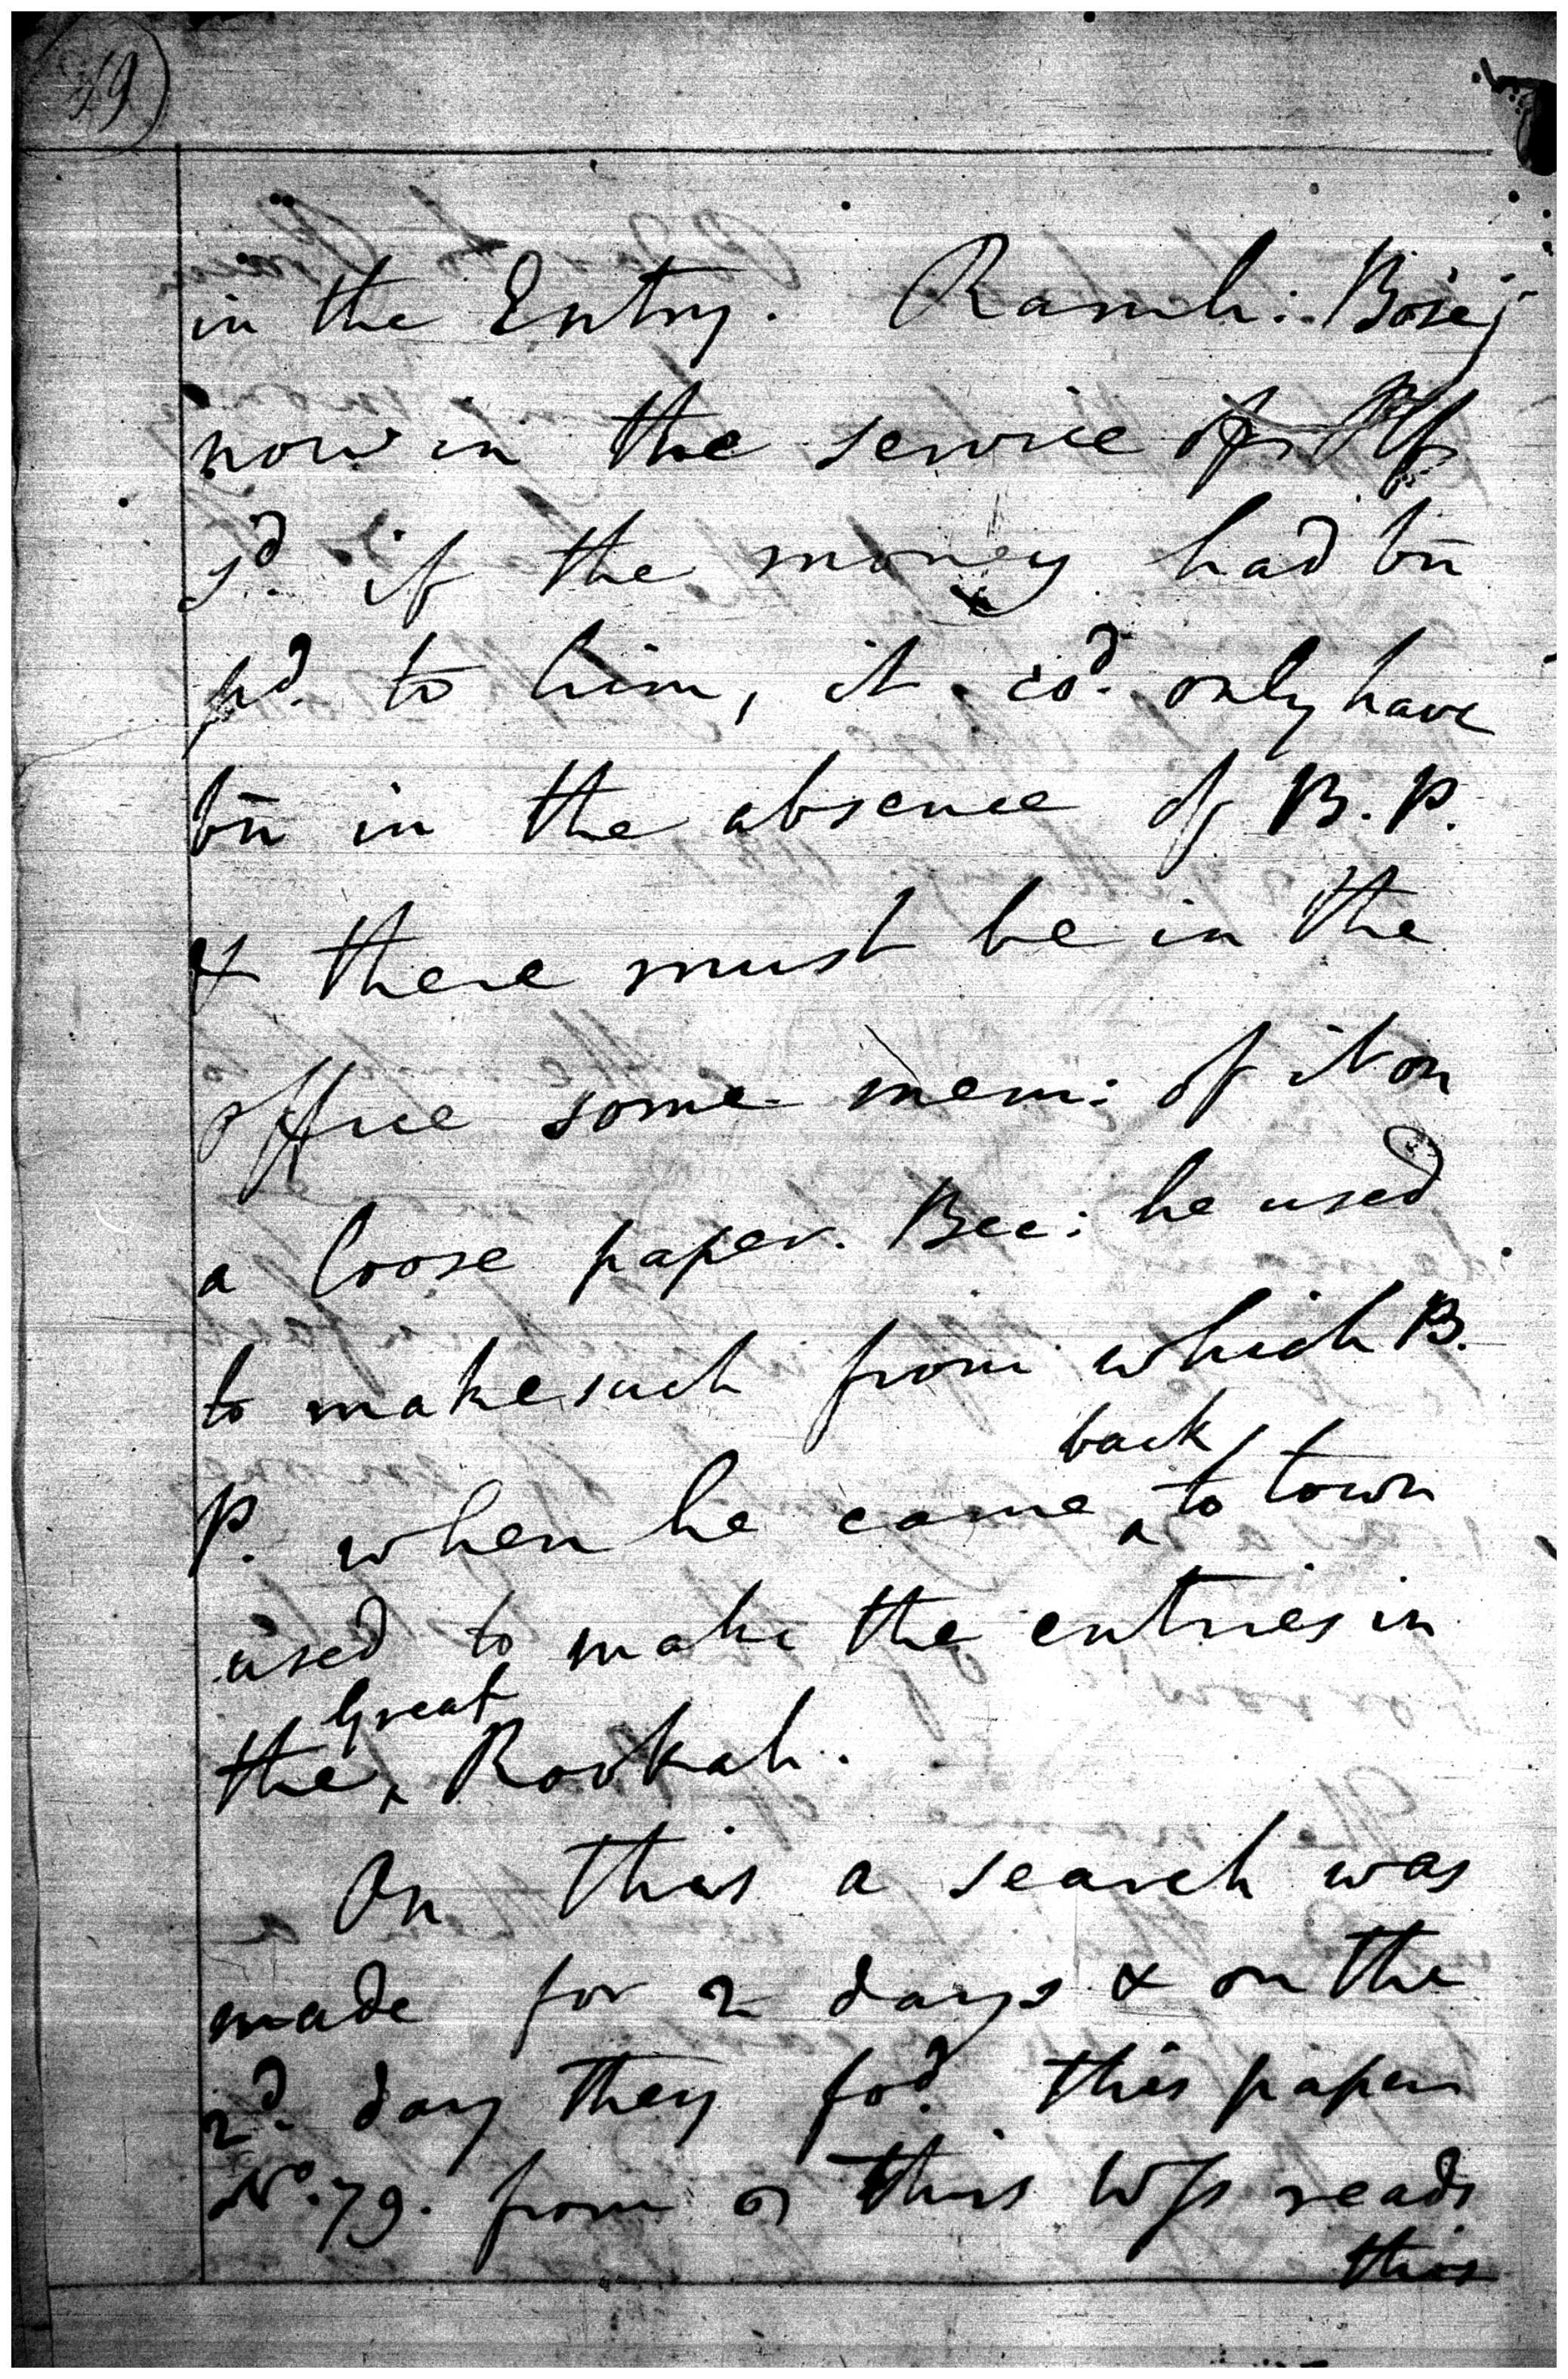 49
in the Entry. Ramh:. Bose,
now in the service of Pfs
sd. if the money had bn̄
pd. to him, it cod. only have
bn̄ in the absence of B. P.
& there must be in the
office some mem: of it on
a loose paper. Bec: he used
to make such from which B.
P. when he came ^back to town
used to make the entries in
the ^Great Rookah.
On this a search was
made for 2 days & on the
2d. day they fod. this paper
No. 79. from wh this Wss reads
this